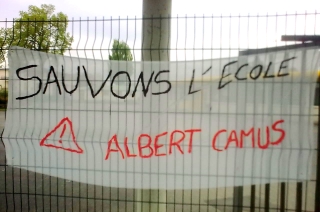 SAUVONS L'ECOLE
! ALBERT CAMUS